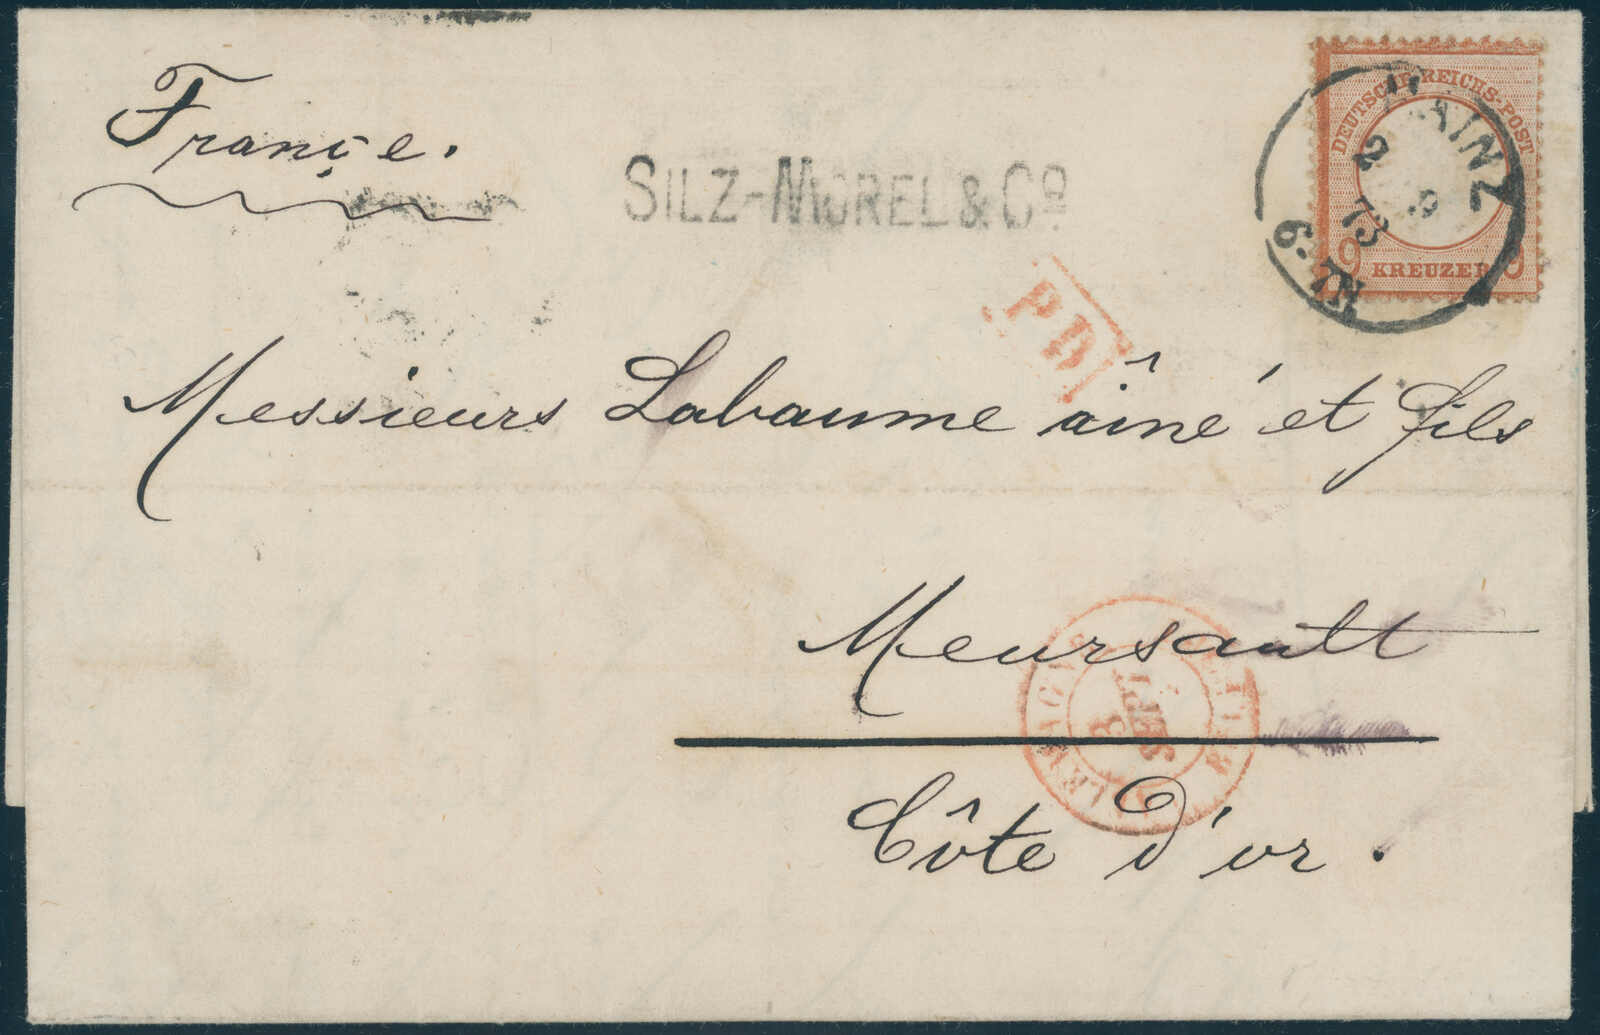 Françe.
SILZ-MOREL & Cº
DEUTSCHE REICHS-POST
9 KREUZER 9
MAINZ
2 9
73
6-7N
PD
Messieurs Labaume âiné et fils
Meursault
Côte d'or.
3 SEPT